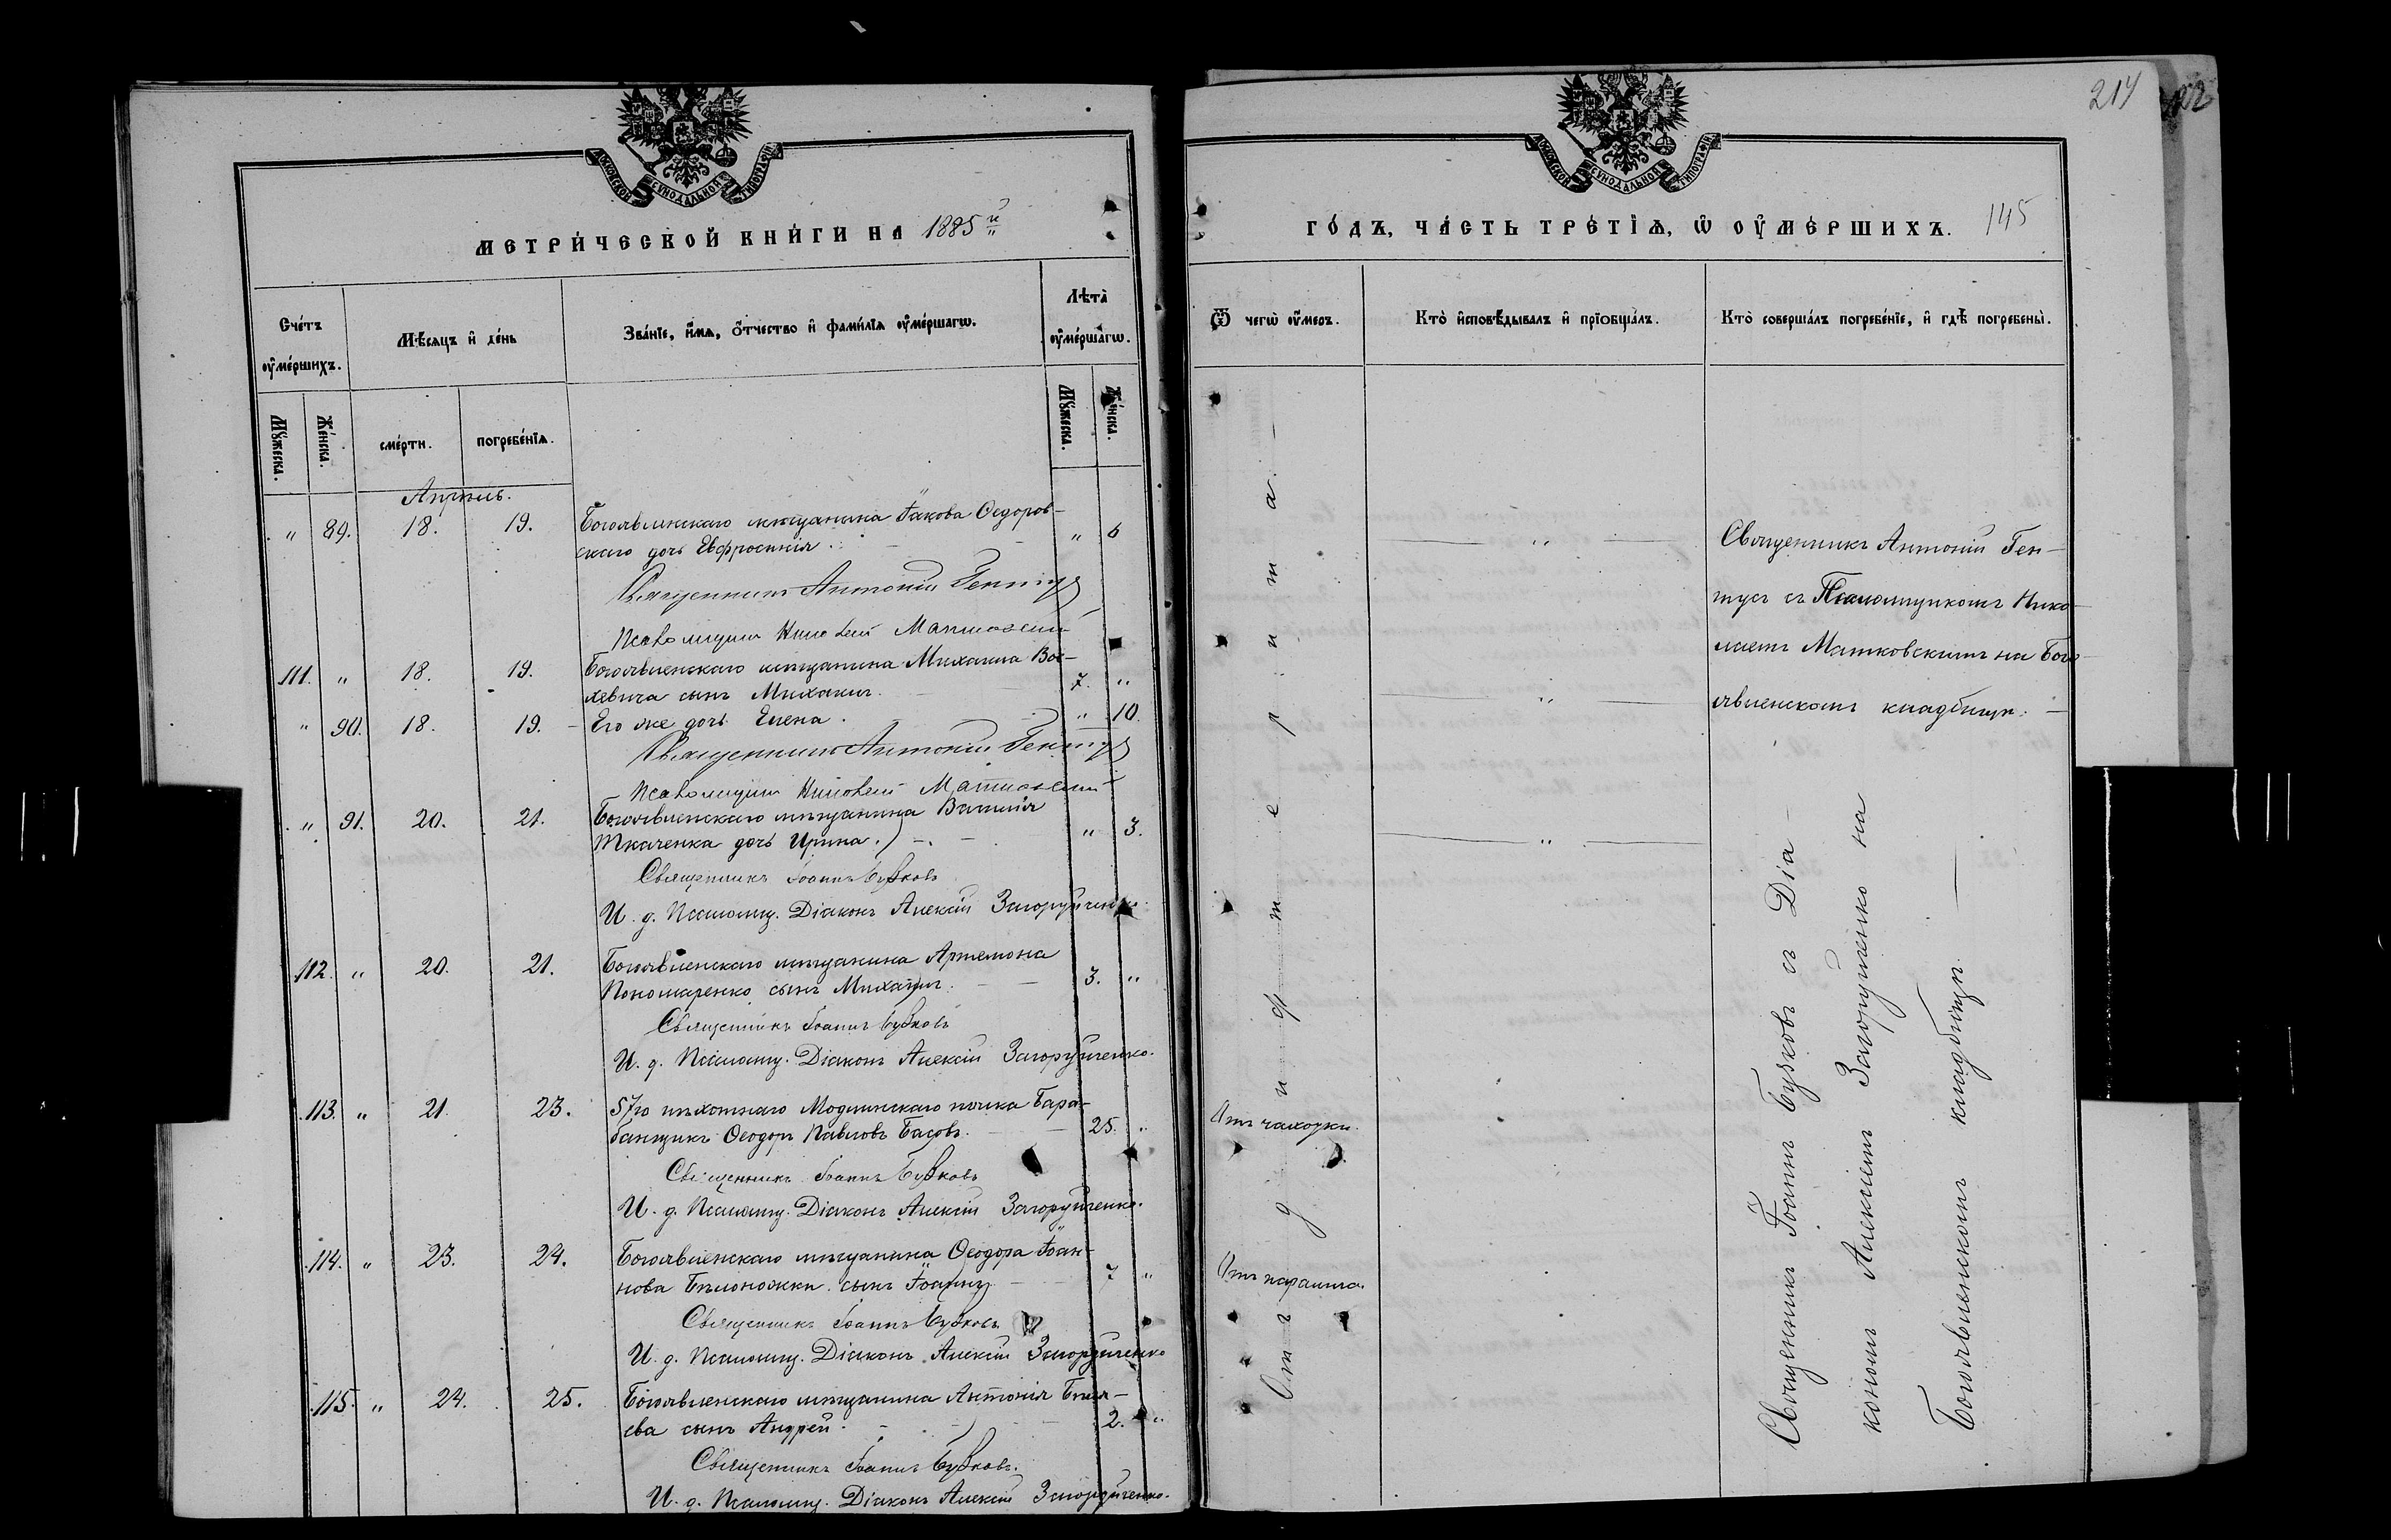 МОСКОВСКОЙ СѴНОДАЛЬНОЙ ТИПОГРАФІИ
МЕТРИ́ЧЕСКОЙ КНИ́ГИ НА 1885й
Сче́тъ ᲂу҆ме́ршихъ.
Мѣ́сяцъ и҆ де́нь
Зва́нїе, и҆́мѧ, ѻ҆́тчество и҆ фами́лїѧ ᲂу҆ме́ршагѡ.
Лѣта̀ ᲂу҆ме́ршагѡ.
Мꙋ́жеска.
Же́нска.
сме́рти.
погребе́нїѧ.
Мꙋ́жеска.
Же́нска.
Апрѣль.
" 89. 18. 19. Богоявленскаго мѣщанина Іакова Ѳедоров-
скаго дочь Евфросинія. " 6
Священникъ Антоній Гентуз
Псаломщикъ Николай Матковскій
111. " 18. 19. Богоявленскаго мѣщанина Михаила Вой-
левича сынъ Михаилъ. 7. "
" 90. 18. 19. Его же дочь Елена. " 10.
Священникъ Антоній Гентуз
Псаломщикъ Николай Матковскій
" 91. 20. 21. Богоявленскаго мѣщанина Василія
Ткаченка дочь Ирина. " 3.
Священникъ Іоаннъ Бузковъ
И. д. Псаломщ. Діаконъ Алексій Загоруйченко.
112. " 20. 21. Богоявленскаго мѣщанина Артемона
Пономаренко сынъ Михаилъ. 3. "
Священникъ Іоаннъ Бузковъ
И. д. Псаломщ. Діаконъ Алексій Загоруйченко.
113. " 21. 23. 57го пѣхотнаго Модлинскаго полка Бара-
банщикъ Ѳеодоръ Павловъ Басовъ. 25. "
Священникъ Іоаннъ Бузковъ
И. д. Псаломщ. Діаконъ Алексій Загоруйченко.
114. " 23. 24. Богоявленскаго мѣщанина Ѳеодора Іоан-
нова Бѣлоножки сынъ Іоаннъ 7 "
Священникъ Іоаннъ Бузковъ
И. д. Псаломщ. Діаконъ Алексій Загоруйченко
115. " 24. 25. Богоявленскаго мѣщанина Антонія Бѣля-
ева сынъ Андрей. 2. "
Священникъ Іоаннъ Бузковъ.
И. д. Псаломщ. Діаконъ Алексій Загоруйченко.
214
МОСКОВСКОЙ СѴНОДАЛЬНОЙ ТИПОГРАФІИ
ГО́ДЪ, ЧА́СТЬ ТРЕ́ТЇѦ, Ѡ҆ ОУ҆МЕ́РШИХЪ. 145
Ѿ чегѡ̀ ᲂу҆́меръ.
Кто̀ и҆сповѣ́дывалъ и҆ прїѡбща́лъ.
Кто̀ соверша́лъ погребе́нїе, и҆ гдѣ̀ погребены̀.
Отъ дифтерита.
Отъ чахотки.
Отъ паралича.
Священникъ Антоній Ген-
тусъ съ Псаломщикомъ Нико-
лаемъ Матковскимъ на Бого-
явленскомъ кладбищѣ.
Священникъ Іоаннъ Бузковъ съ Діа-
кономъ Алексіемъ Загоруйченко на
Богоявленскомъ кладбищѣ.